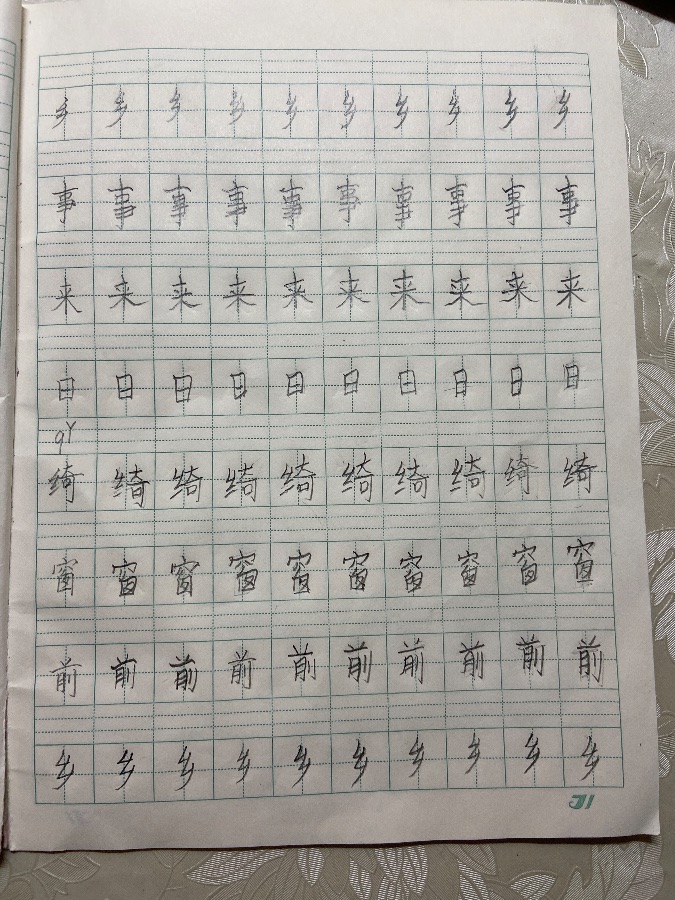 乡乡乡乡乡乡乡乡乡乡
事事事事事事事事事事
来来来来来来来来来来
日日日日日日日日日日
qY
绮绮绮绮绮绮绮绮绮绮
窗窗窗窗窗窗窗窗窗窗
前前前前前前前前前前
乡乡乡乡乡乡乡乡乡乡